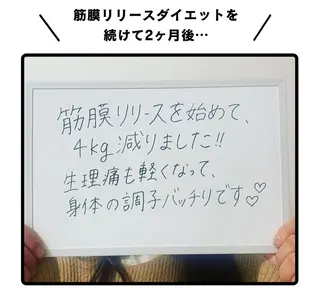 筋膜リリースダイエットを
続けて2ヶ月後…
筋膜リリースを始めて、
4kg減りました!!
生理痛も軽くなって、
身体の調子バッチリです♡♡